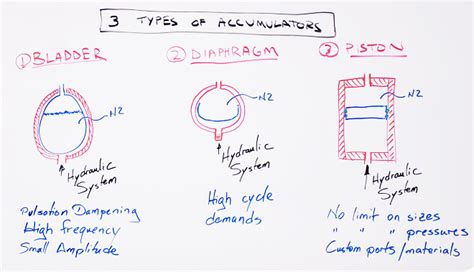 3 TYPES OF ACCUMULATORS
① BLADDER
N2
Hydraulic
System
Pulsation Dampening
High frequency
Small Amplitude
② DIAPHRAGM
N2
Hydraulic
System
High cycle
demands
③ PISTON
N2
Hydraulic
System
No limit on sizes
" " " pressures
Custom ports/materials